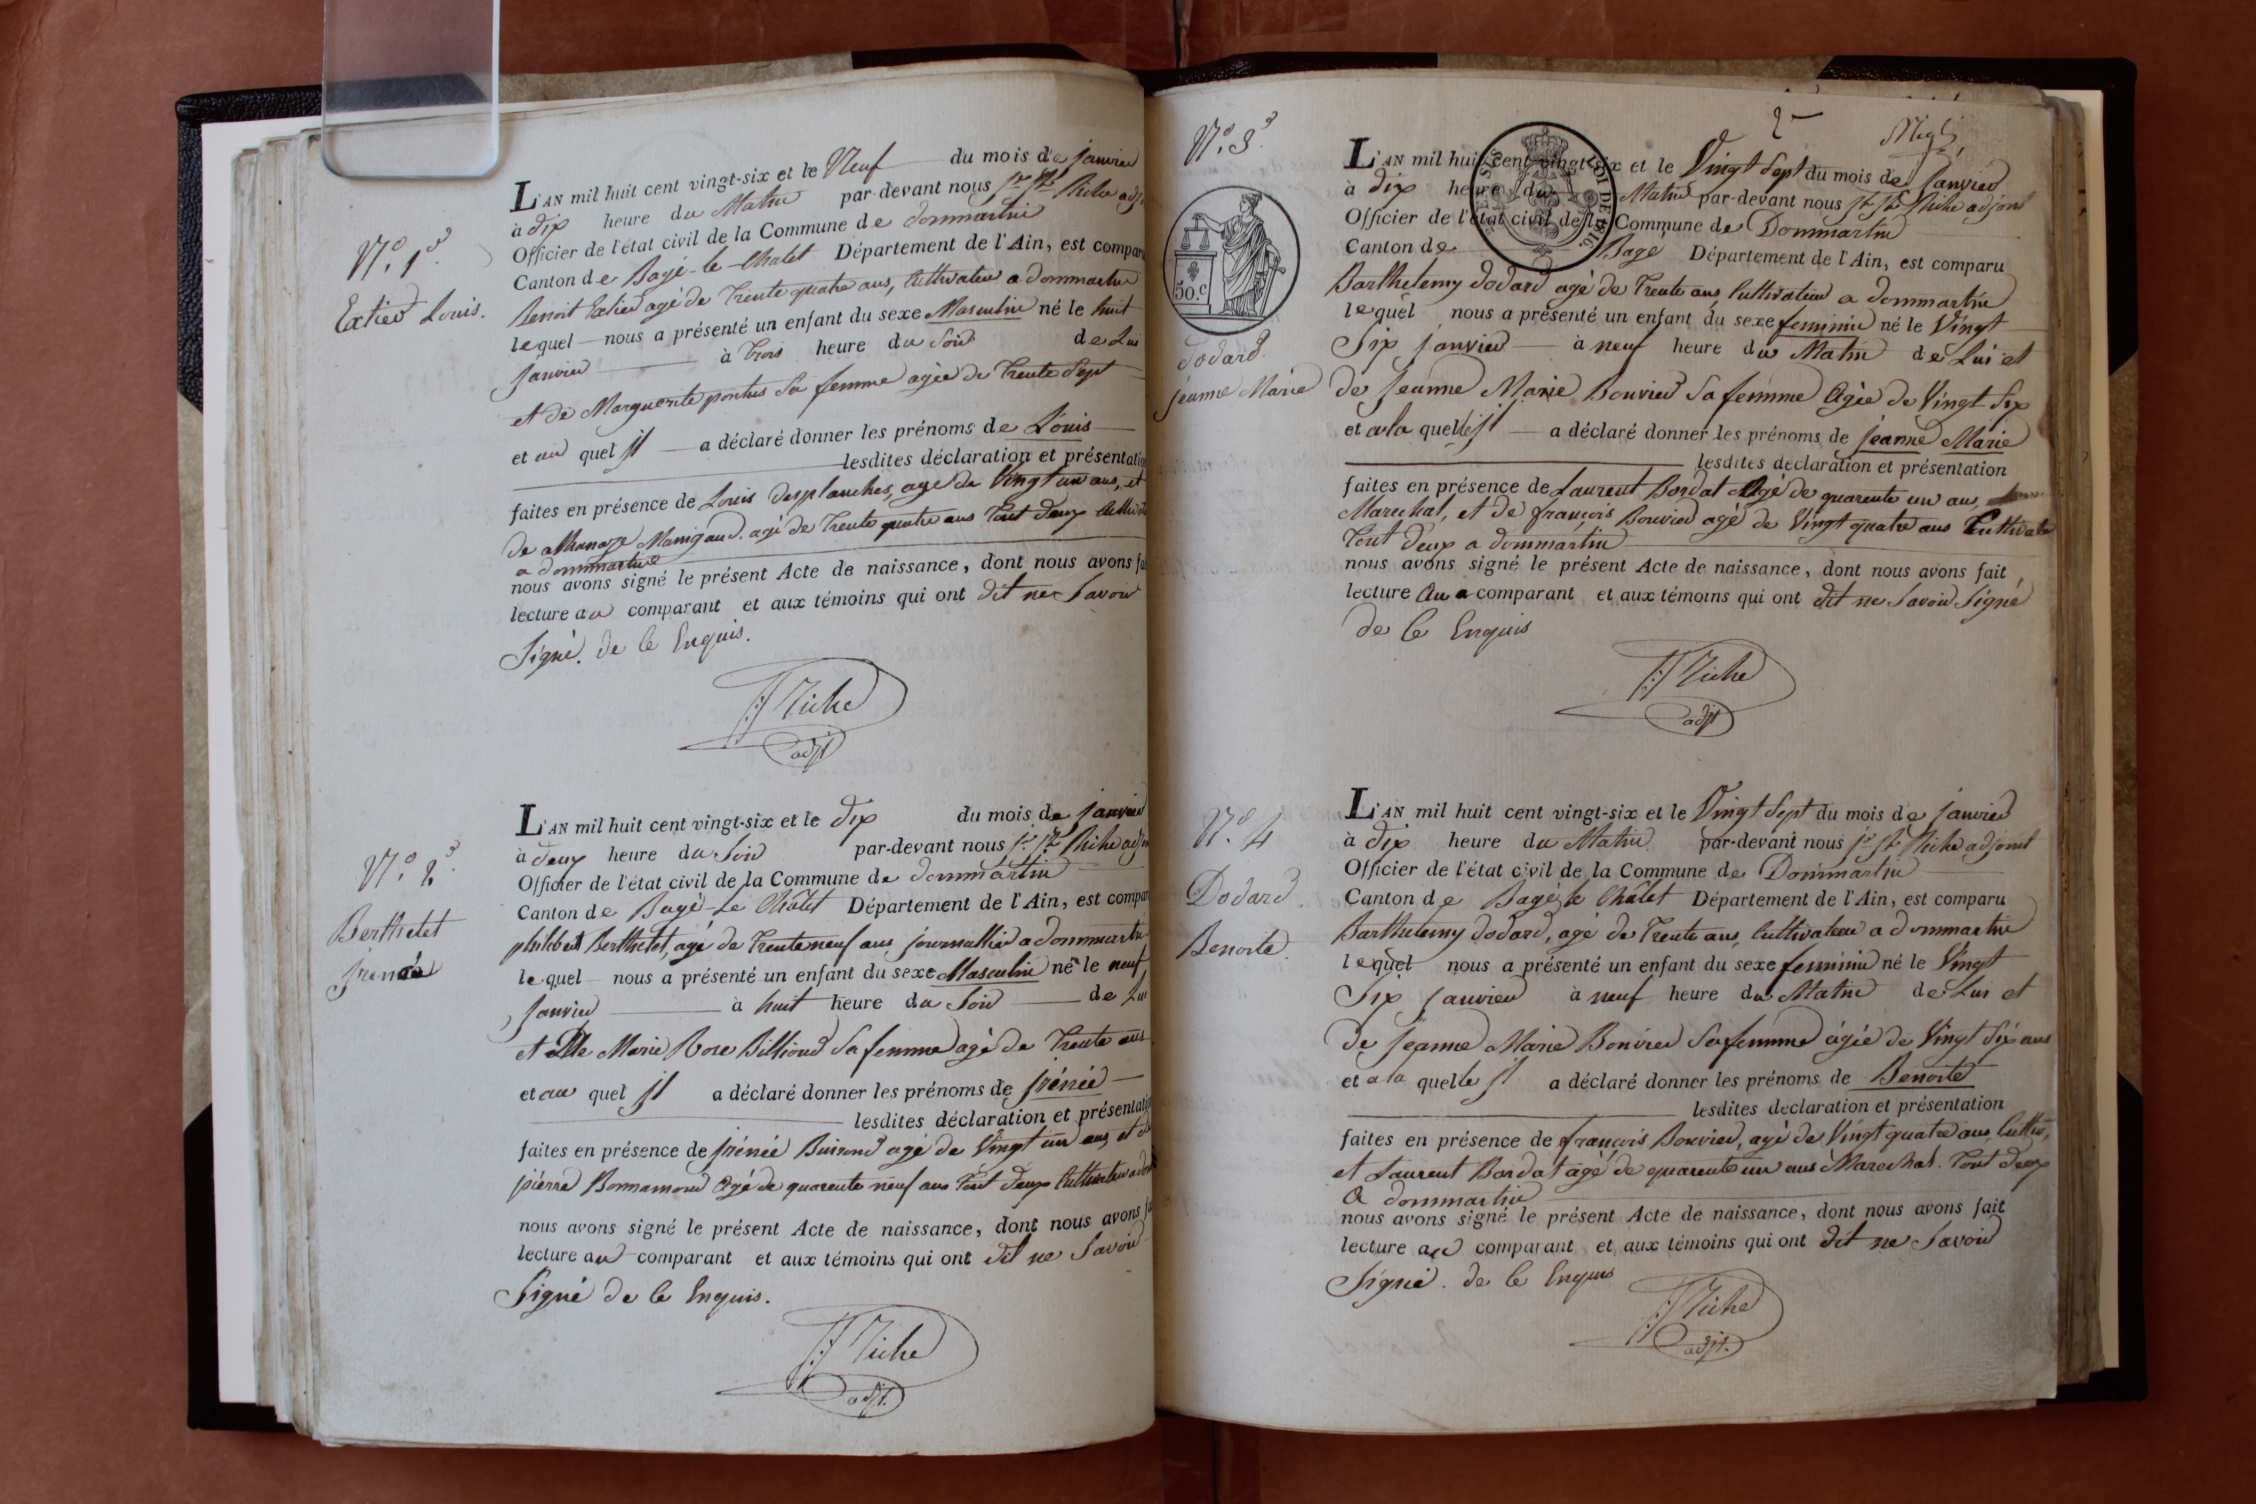 N.º 1.er
Extier Louis.
L'AN mil huit cent vingt-six et le Neuf du mois de janvier
à dix heure du Matin par-devant nous
Officier de l'état civil de la Commune de dommartin
Canton de Bagé-le-Chatel Département de l'Ain, est compar
Benoit Extier agé de Trente quatre ans, Cultivateur a dommartin
lequel nous a présenté un enfant du sexe Masculin né le huit
janvier à Trois heure du Soir de Lui
et de Marguerite pontus Sa femme agée de Trente Sept
et au quel jl a déclaré donner les prénoms de Louis
lesdites déclaration et présentation
faites en présence de Louis Desplanches, agé de Vingt un ans, et
de athanaze Manigaud. agé de Trente quatre ans Tout Deux
a dommartin
nous avons signé le présent Acte de naissance, dont nous avons
lecture au comparant et aux témoins qui ont dit ne Savoir
Signé. de Ce Enquis.
adjt
N.º 2.
Berthelet
jrenée
L'AN mil huit cent vingt-six et le dix du mois de janvier
à deux heure du Soir par-devant nous
Officier de l'état civil de la Commune de dommartin
Canton de Bagé-Le Châtel Département de l'Ain, est compar
philibert Berthelet, agé de Trente neuf ans journallier a dommartin
lequel nous a présenté un enfant du sexe Masculin né le neuf
janvier à huit heure du Soir de Lui
et De Marie Rose Billioud Sa femme agé de Trente ans
et au quel jl a déclaré donner les prénoms de jrénée
lesdites déclaration et présentation
faites en présence de jrénée Buirond agé de Vingt un ans et de
pierre Bonnamour Agé de quarente neuf ans Tout Deux Cultivateur a
nous avons signé le présent Acte de naissance, dont nous avons
lecture au comparant et aux témoins qui ont dit ne Savoir
Signé de Ce Enquis.
adjt.
2
N.º 3.
50.c
Dodard
jeanne Marie
L'AN mil huit cent vingt-six et le Vingt Sept du mois de Janvier
à dix heure du Matin par-devant nous adjoint
Officier de l'état civil de la Commune de Dommartin
Canton de Bagé Département de l'Ain, est comparu
Barthelemy Dodard agé de Trente ans Cultivateur a dommartin
lequel nous a présenté un enfant du sexe feminin né le Vingt
Six janvier à neuf heure du Matin de Lui et
de Jeanne Marie Bouvier Sa femme Agée de Vingt Six
et a la quelle jl a déclaré donner les prénoms de jeanne Marie
lesdites déclaration et présentation
faites en présence de Laurent Bordat Agé de quarente un an,
Marechal, et de françois Bouvier agé de Vingt quatre ans Cultivate
Tout Deux a dommartin
nous avons signé le présent Acte de naissance, dont nous avons fait
lecture Au comparant et aux témoins qui ont dit ne Savoir Signé
de Ce Enquis
adjt
N.º 4
Dodard
Benoite.
L'AN mil huit cent vingt-six et le Vingt Sept du mois de janvier
à dix heure du Matin par-devant nous adjoint
Officier de l'état civil de la Commune de Dommartin
Canton de Bagé le Châlet Département de l'Ain, est comparu
Barthelemy Dodard, agé de Trente ans Cultivateur a dommartin
lequel nous a présenté un enfant du sexe feminin né le Vingt
Six janvier à neuf heure du Matin de Lui et
de jeanne Marie Bouvier Sa femme agée de Vingt Six ans
et a la quelle jl a déclaré donner les prénoms de Benoite
lesdites déclaration et présentation
faites en présence de françois Bouvier, agé de Vingt quatre ans,
et Laurent Bordat agé de quarente un ans Marechal. Tout Deux
a dommartin
nous avons signé le présent Acte de naissance, dont nous avons fait
lecture au comparant et aux témoins qui ont dit ne Savoir
Signé. de Ce Enquis
adjt.